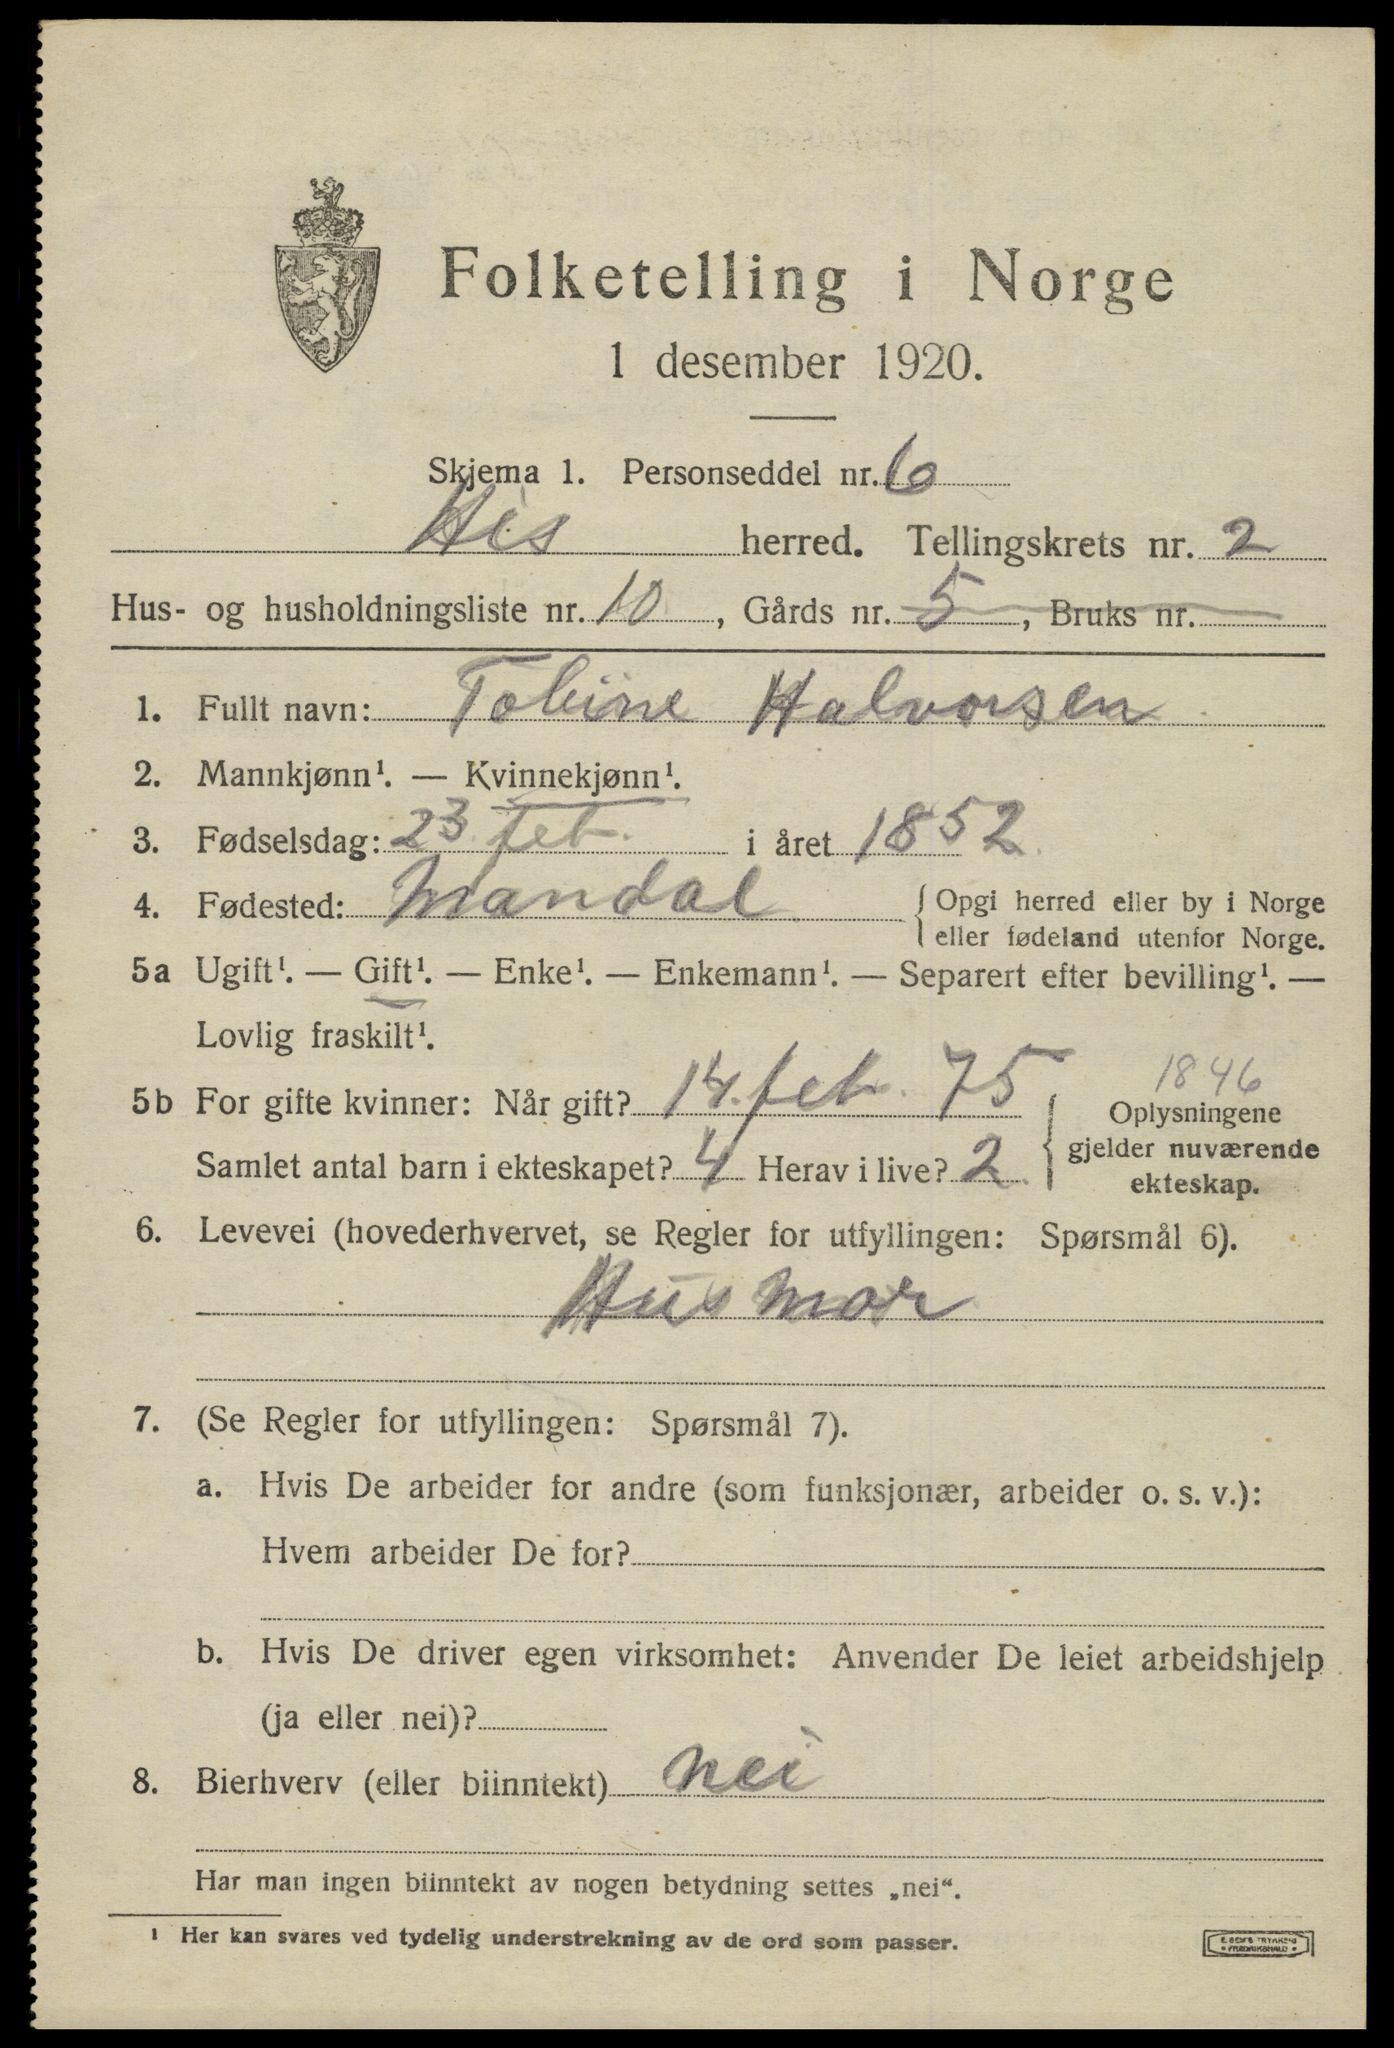 Folketelling i Norge
1 desember 1920.
Skjema 1. Personseddel nr. 6
His herred. Tellingskrets nr. 2
Hus- og husholdningsliste nr. 10, Gårds nr. 5, Bruks nr. —
1. Fullt navn: Tobine Halvorsen
2. Mannkjønn¹. — Kvinnekjønn¹.
3. Fødselsdag: 23 feb. i året 1852
4. Fødested: Mandal { Opgi herred eller by i Norge
eller fødeland utenfor Norge.
5a Ugift¹. — Gift¹. — Enke¹. — Enkemann¹. — Separert efter bevilling¹. —
Lovlig fraskilt¹.
1846
5b For gifte kvinner: Når gift? 14. feb. 75 { Oplysningene
gjelder nuværende
ekteskap.
Samlet antal barn i ekteskapet? 4 Herav i live? 2
6. Levevei (hovederhvervet, se Regler for utfyllingen: Spørsmål 6).
Husmor
7. (Se Regler for utfyllingen: Spørsmål 7).
a. Hvis De arbeider for andre (som funksjonær, arbeider o. s. v.):
Hvem arbeider De for?
b. Hvis De driver egen virksomhet: Anvender De leiet arbeidshjelp
(ja eller nei)?
8. Bierhverv (eller biinntekt) nei
Har man ingen biinntekt av nogen betydning settes „nei“.
¹ Her kan svares ved tydelig understrekning av de ord som passer.
FREDRIKSHALD